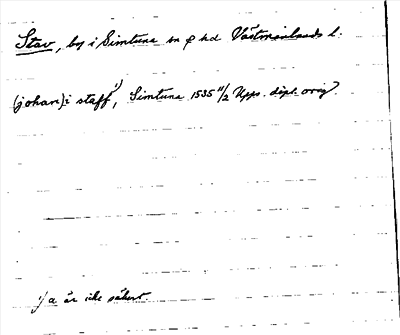 Stav, by i Simtuna sn o hd Västmanlands l.
(johan) i staff¹⁾, Simtuna 1535 11/2 Upps. dipl. orig.
¹⁾ a är icke säkert.